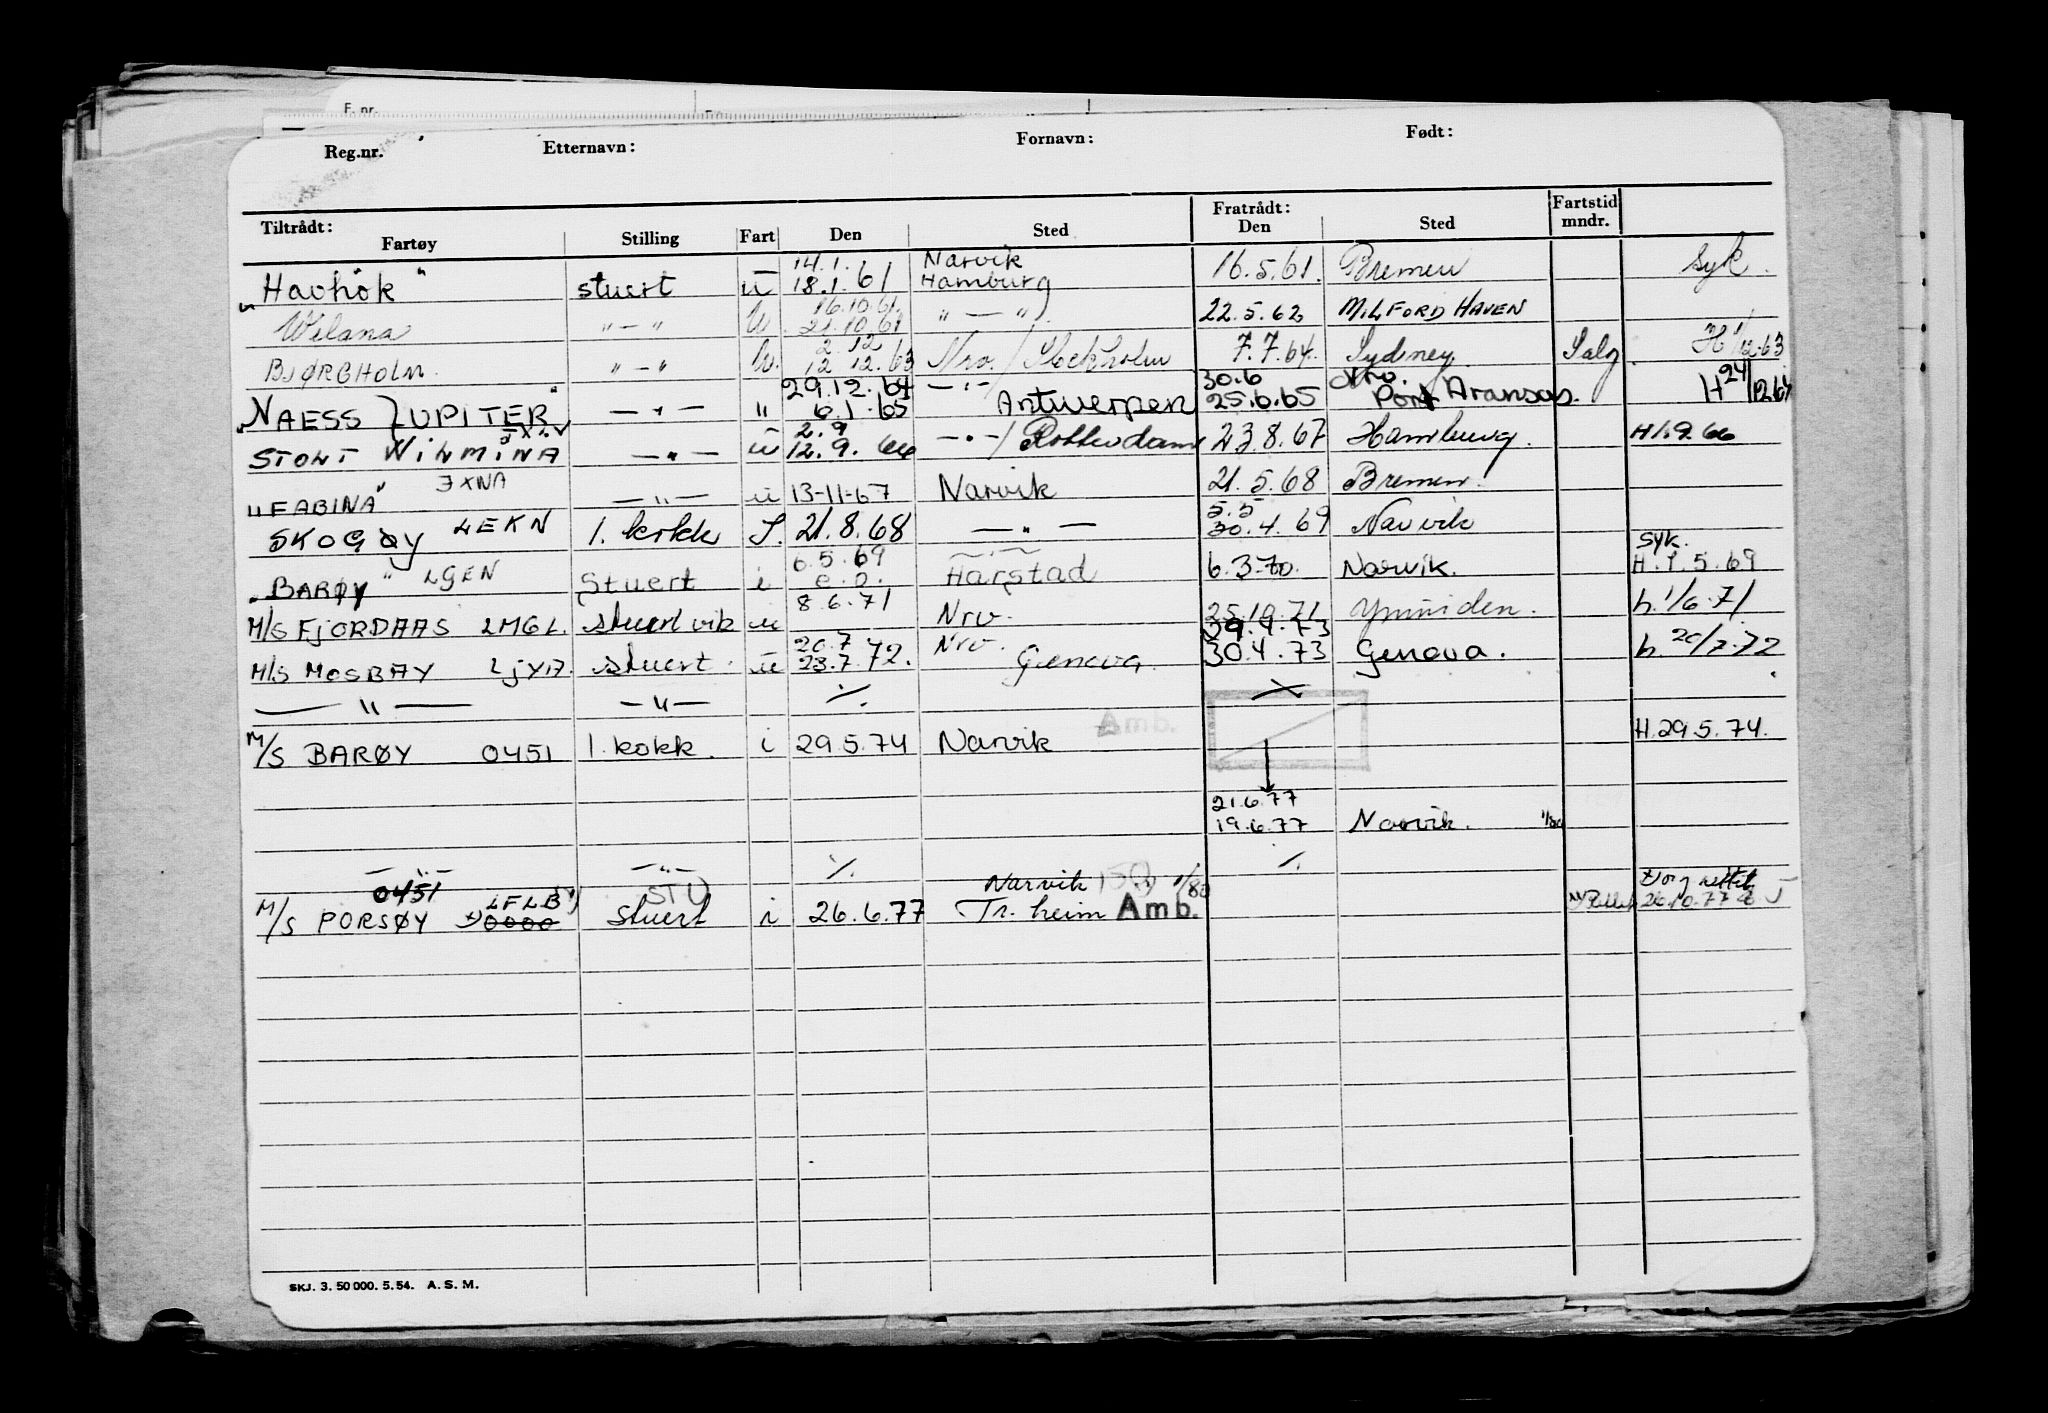 F. nr.
Reg.nr. Etternavn: Fornavn: Født:
Tiltrådt: Fratrådt: Fartstid
Fartøy Stilling Fart Den Sted Den Sted mndr.
14.1. Narvik
"Havhök" stuert u 18.1.61 Hamburg 16.5.61. Bremen Syk.
16.10.61
Wilana " — " u. 21.10.61 " — ". 22.5.62 MILFORD HAVEN
2 12
BJØRGHOLM. " — " u. 12 12.63 Nrv. / Stockholm 7.7.64. Sydney Salg H 1/12.63
29.12.64 30.6 Nrv.
"NAESS JUPITER" — " — " 6.1.65 — " — Antwerpen 25.6.65 Port Aransas. H 24/12 64
2.9
STOLT WILMINA — " — u 12.9.66 — " — / Rotterdam 23.8.67 Hamburg. H 1.9.66
"FABINA" JXNA — " — u 13-11-67 Narvik 21.5.68 Bremen.
5.5
SKOGØY LEKN 1. kokk I. 21.8.68 — " — 30.4.69 Narvik
6.5.69 — " — syk.
"BARØY" LGEN Stuert i e.o. Harstad 6.3.70. Narvik. H.1.5.69
8.6.71
M/S FJORDAAS LMGL. stuert vik u Nrv. 25.10.71 Ymuiden. h. 1/6.71
20.7 Nrv. 29.4.73
M/S MOSBAY LJYA. stuert. u 23.7.72. Genova. 30.4.73 Genova. h. 20/7.72
— " — — " — ./. ./.
Amb.
M/S BARØY 0451 1. kokk. i 29.5.74 Narvik H.29.5.74.
21.6.77
19.6.77 Narvik. 1/80
— " — — " — ./. ./.
0451 STU Narvik 1/80
M/S PORSØY LFLB 0000 Stuert i 26.6.77 Tr. heim Amb. 26.10.77
SKJ. 3. 50 000. 5. 54. A. S. M.